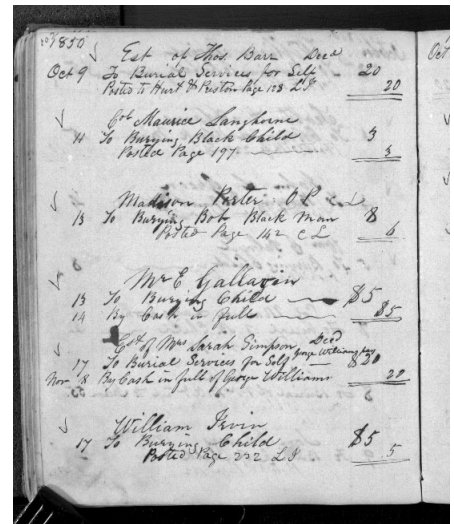 1850
Est of Thos Barr Decd
Oct 9 To Burial Services for Self 20
Posted to Hurt & Preston Page 128 L I 20
Col Maurice Langhorne
11 To Burying Black Child 3
Posted Page 197 3
Madison Porter O P
13 To Burying Bob Black Man 8
Posted Page 142 C L
Mr E Gallavin
13 To Burying Child $5
14 By Cash in full $5
Est of Mrs Sarah Simpson Decd
17 To Burial Services for Self George Williams $20
Nov 8 By Cash in full of George Williams 20
William Irvin
17 To Burying Child $5
Posted Page 222 L I 5
Oct